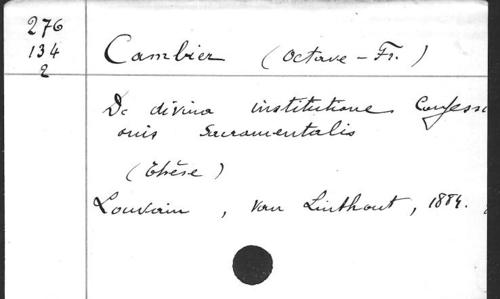 276
134
2
Cambier (Octave-Fr.)
De divina institutione Confessi
onis Sacramentalis
(Thèse)
Louvain, Van Linthout, 1884.